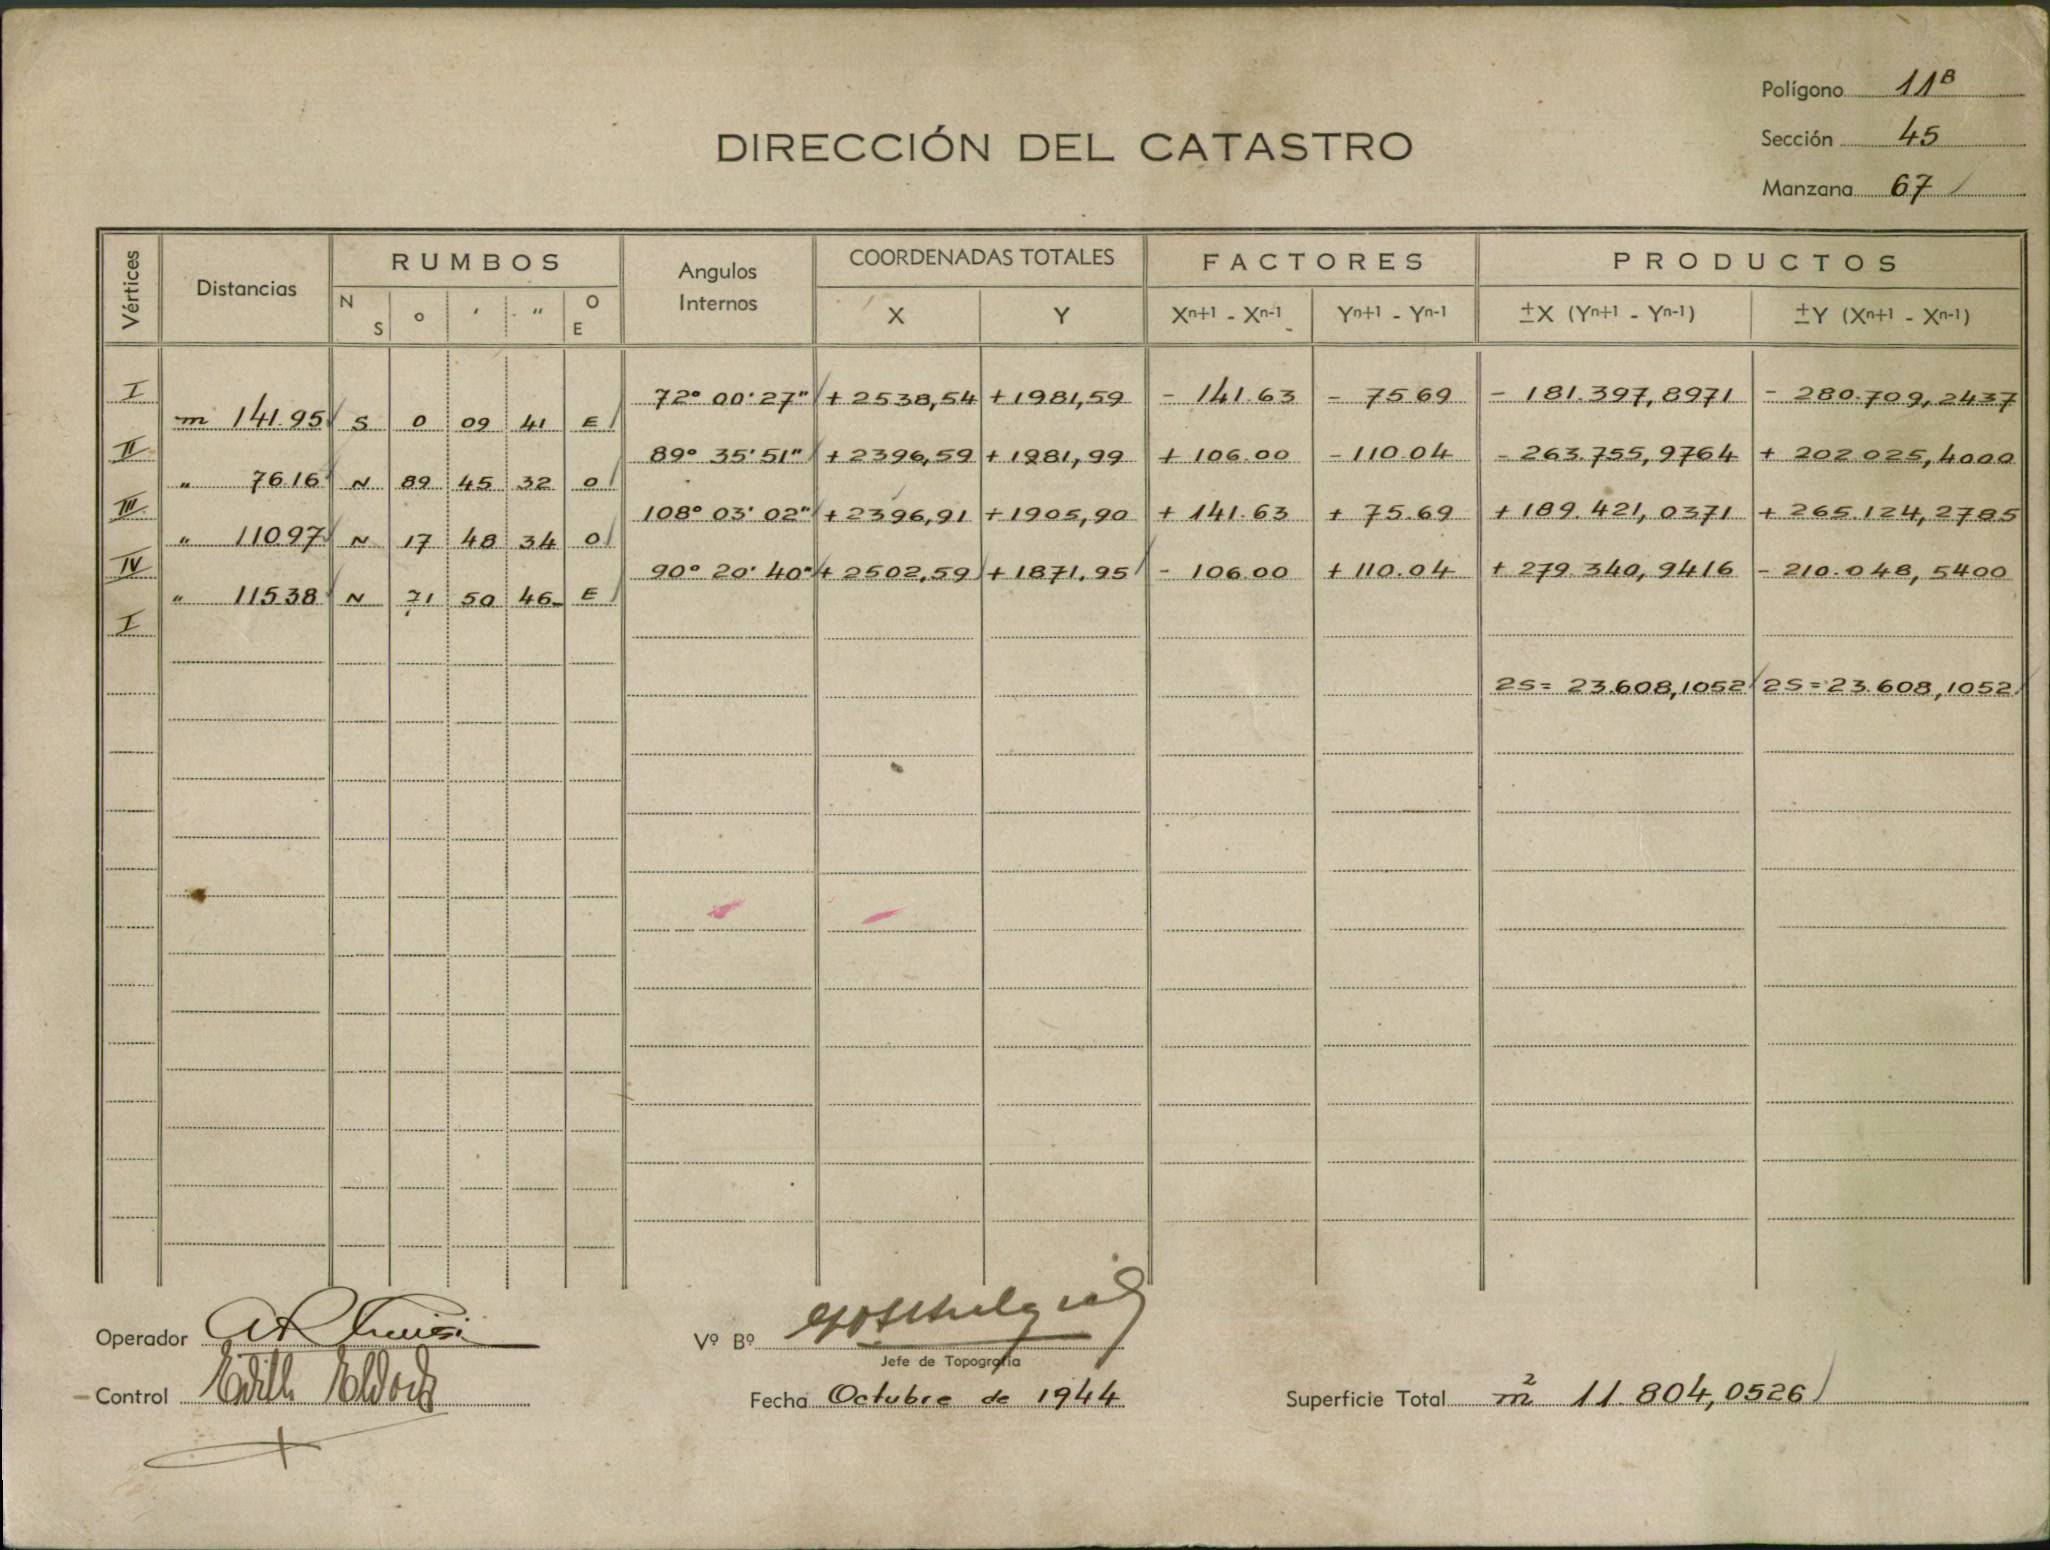 Polígono 11B
Sección 45
Manzana 67
DIRECCIÓN DEL CATASTRO
Vértices Distancias RUMBOS Angulos Internos COORDENADAS TOTALES FACTORES PRODUCTOS
N S o ' " O E X Y Xn+1 - Xn-1 Yn+1 - Yn-1 ±X (Yn+1 - Yn-1) ±Y (Xn+1 - Xn-1)
I 72° 00' 27" + 2538,54 + 1981,59 - 141.63 - 75 69 - 181.397,8971 - 280.709,2437
m 141.95 S 0 09 41 E
II 89° 35' 51" + 2396,59 + 1981,99 + 106.00 - 110.04 - 263.755,9764 + 202.025,4000
" 76.16 N 89 45 32 O
III 108° 03' 02" + 2396,91 + 1905,90 + 141.63 + 75.69 + 189.421,0371 + 265.124,2785
" 110 97 N 17 48 34 O
IV 90° 20' 40" + 2502,59 + 1871,95 - 106.00 + 110.04 + 279.340,9416 - 210.048,5400
" 115 38 N 71 50 46 E
I
2S= 23.608,1052 2S=23.608,1052
Operador
Vº Bº
Jefe de Topografía
Control Edith
Fecha Octubre de 1944
Superficie Total m2 11.804,0526